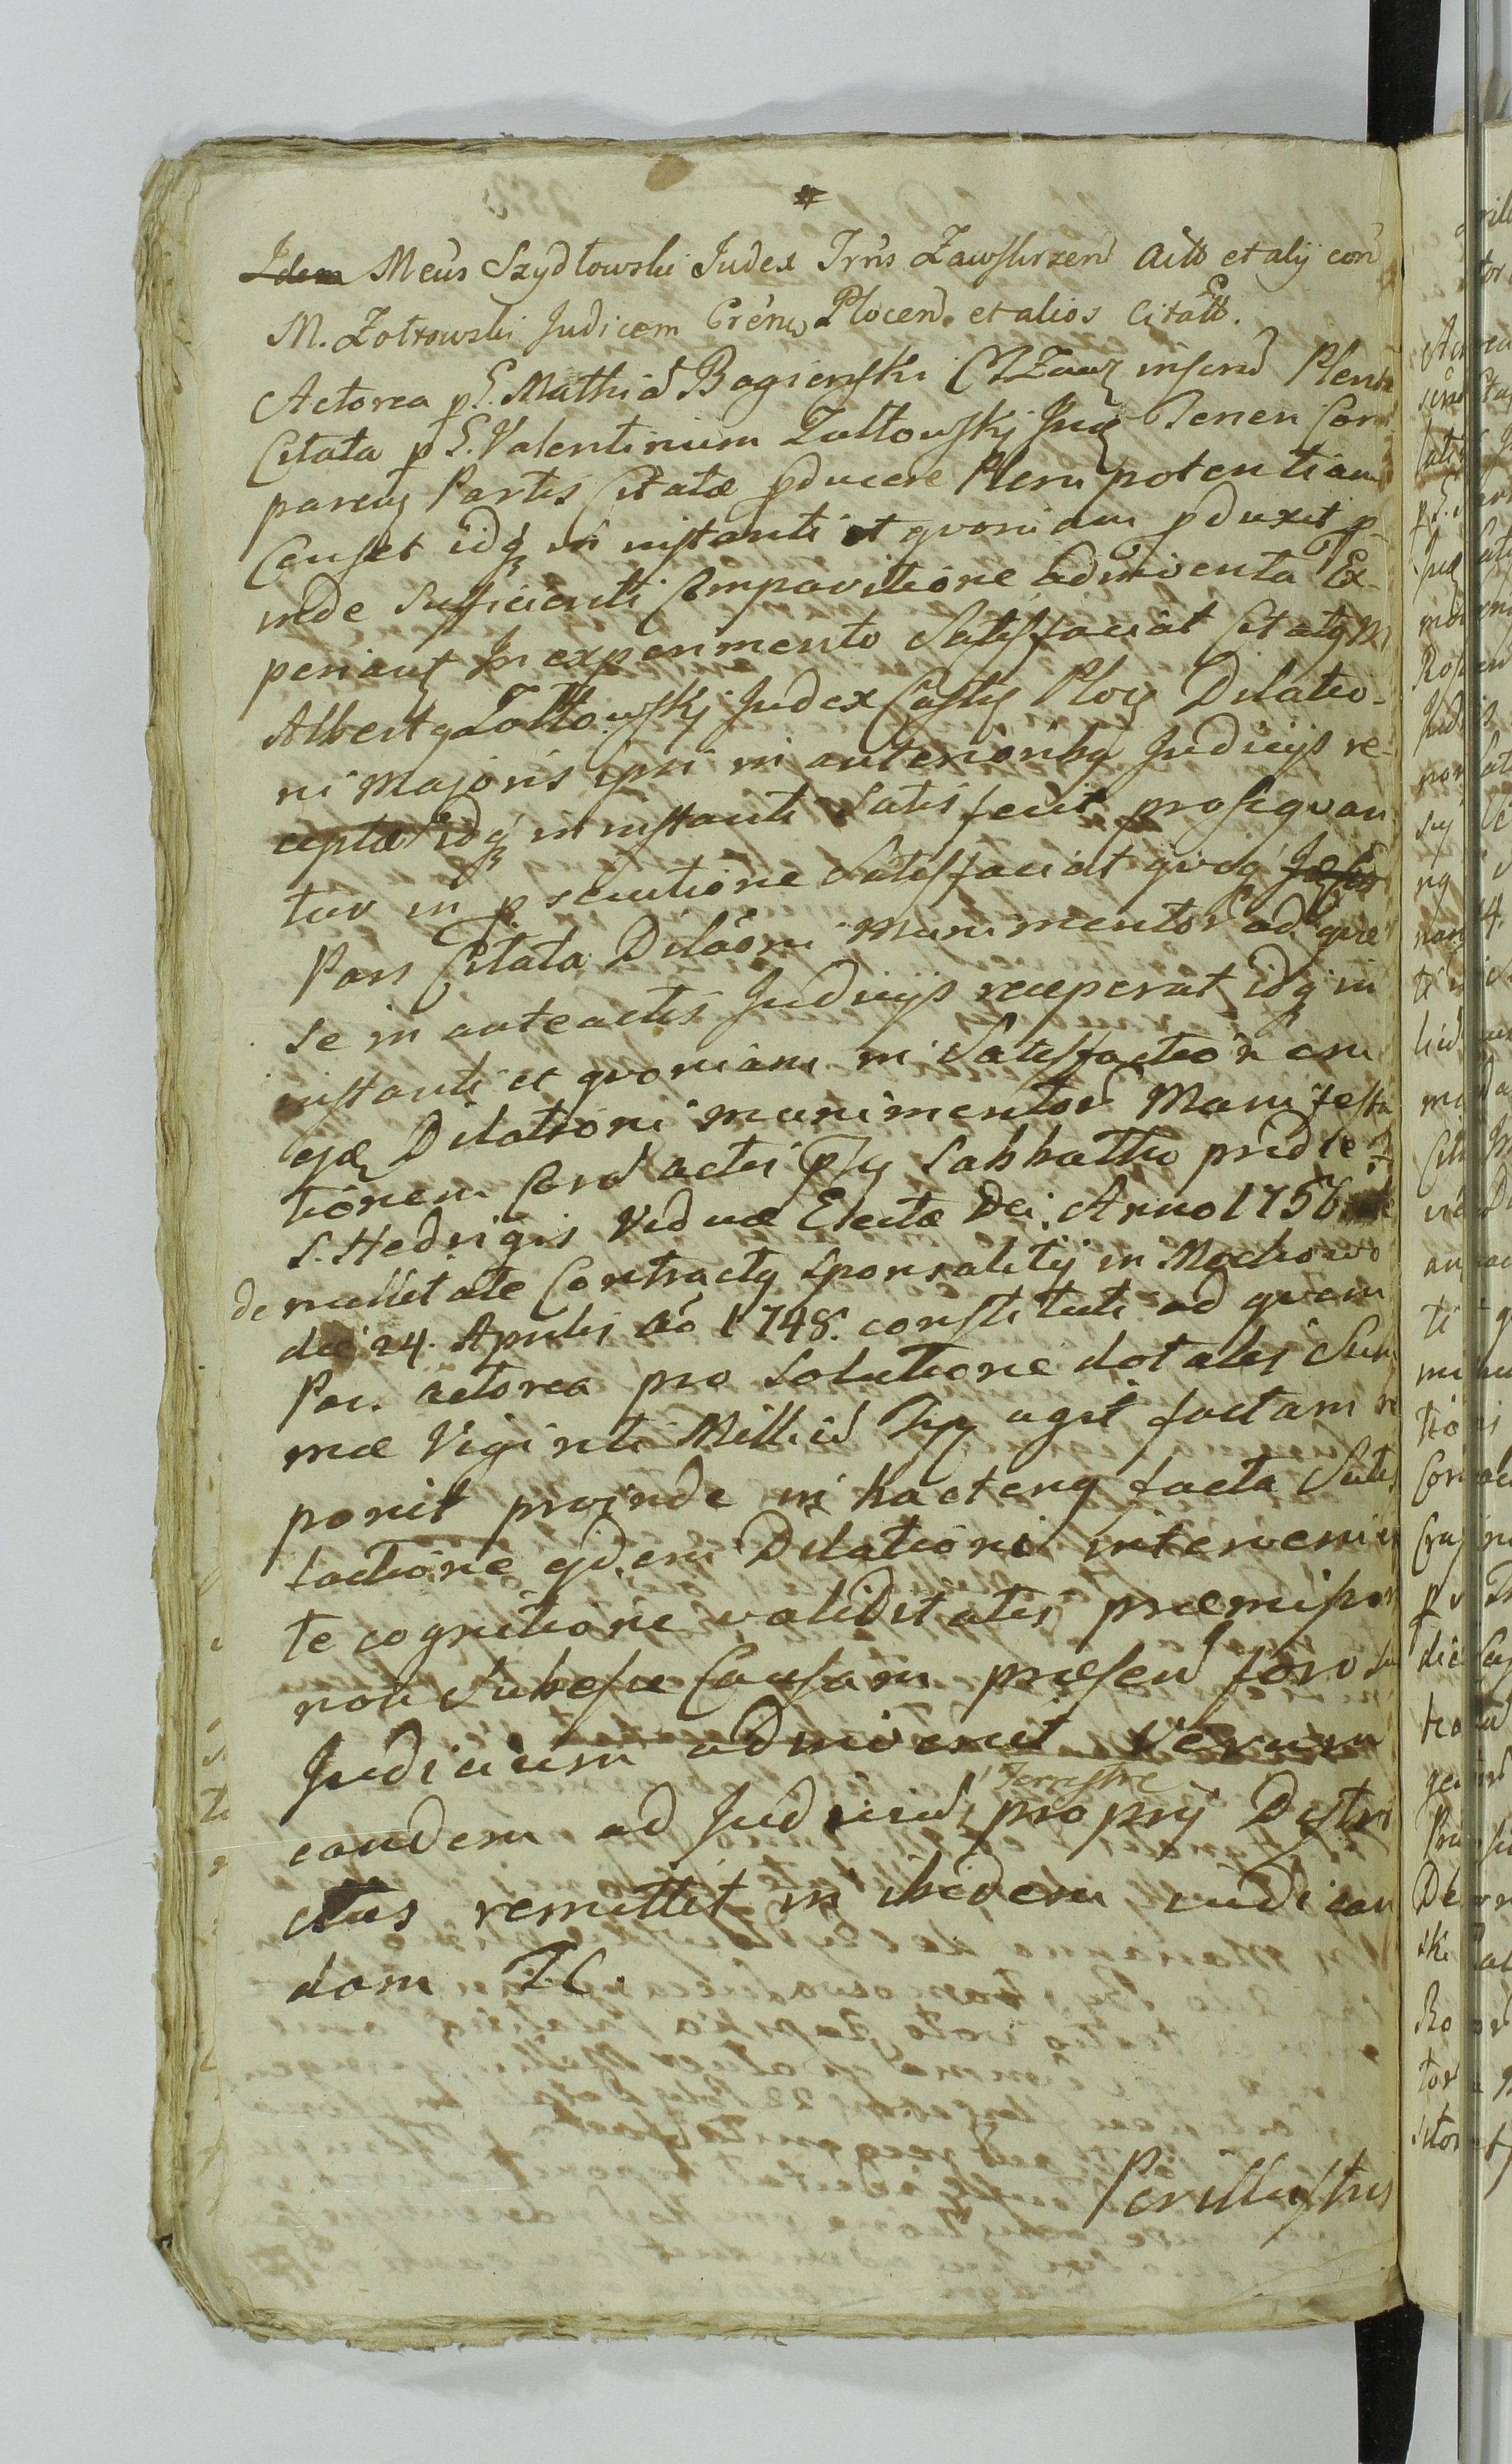 Idem Meus Szydłowski Judex Trrís Zawskrzen Actt et alij con
M. Zołtowski Judicem Crénw Plocen. et alios Citatt.
Actorea p E. Mathiã Bagienski CTZawz inscrib Plen
Citata p E. Valentinum Zołtowskj Jug Tenen Com
parenz Partis Citatæ pducere Plenipotentiam
Censet idq in instanti et qvoniam pduxit p
inde sufficienti Comparitione adinventa Ex-
periantz In experimento Satisfaciat Citatq M
Albertq Zołtowskj Judex Castrz Płocz Dilatio-
ni Majoris ipsi in anterioribq Judicijs re-
ceptæ idq in instanti satisfecit proseqvan
tur in psecutione Satisfaciat qvoq
Pars Citata Dilaõni Munimentor ad qvæ
se in anteactis Judicijs receperat idq in
instanti et qvoniam in Satisfactionem
ejdz Dilationi munimentor Manifesta
tionem Cord actis Sabbatho pridie
S. Hedvigis Viduæ Electæ Dei Anno 1756
de nullitate Contractq Sponsalitij in Mochowo
die 24. Aprilis aõ 1748. constituti ad qvem
Par. actorea pro Solutione dotalis Sum
mæ Viginti Milliu agit factam re
ponit proinde in hactenq facta Satis
factione ejdem Dilationi intervenien
te cognitione validitatis præmissor
non Subesse Causam præsen foro su
Judicium adinvenit Verum
eandem ad Judiciu Terrestre proprij Distri
ctus remittit in ibidem iudican
dam IC.
Perillustris